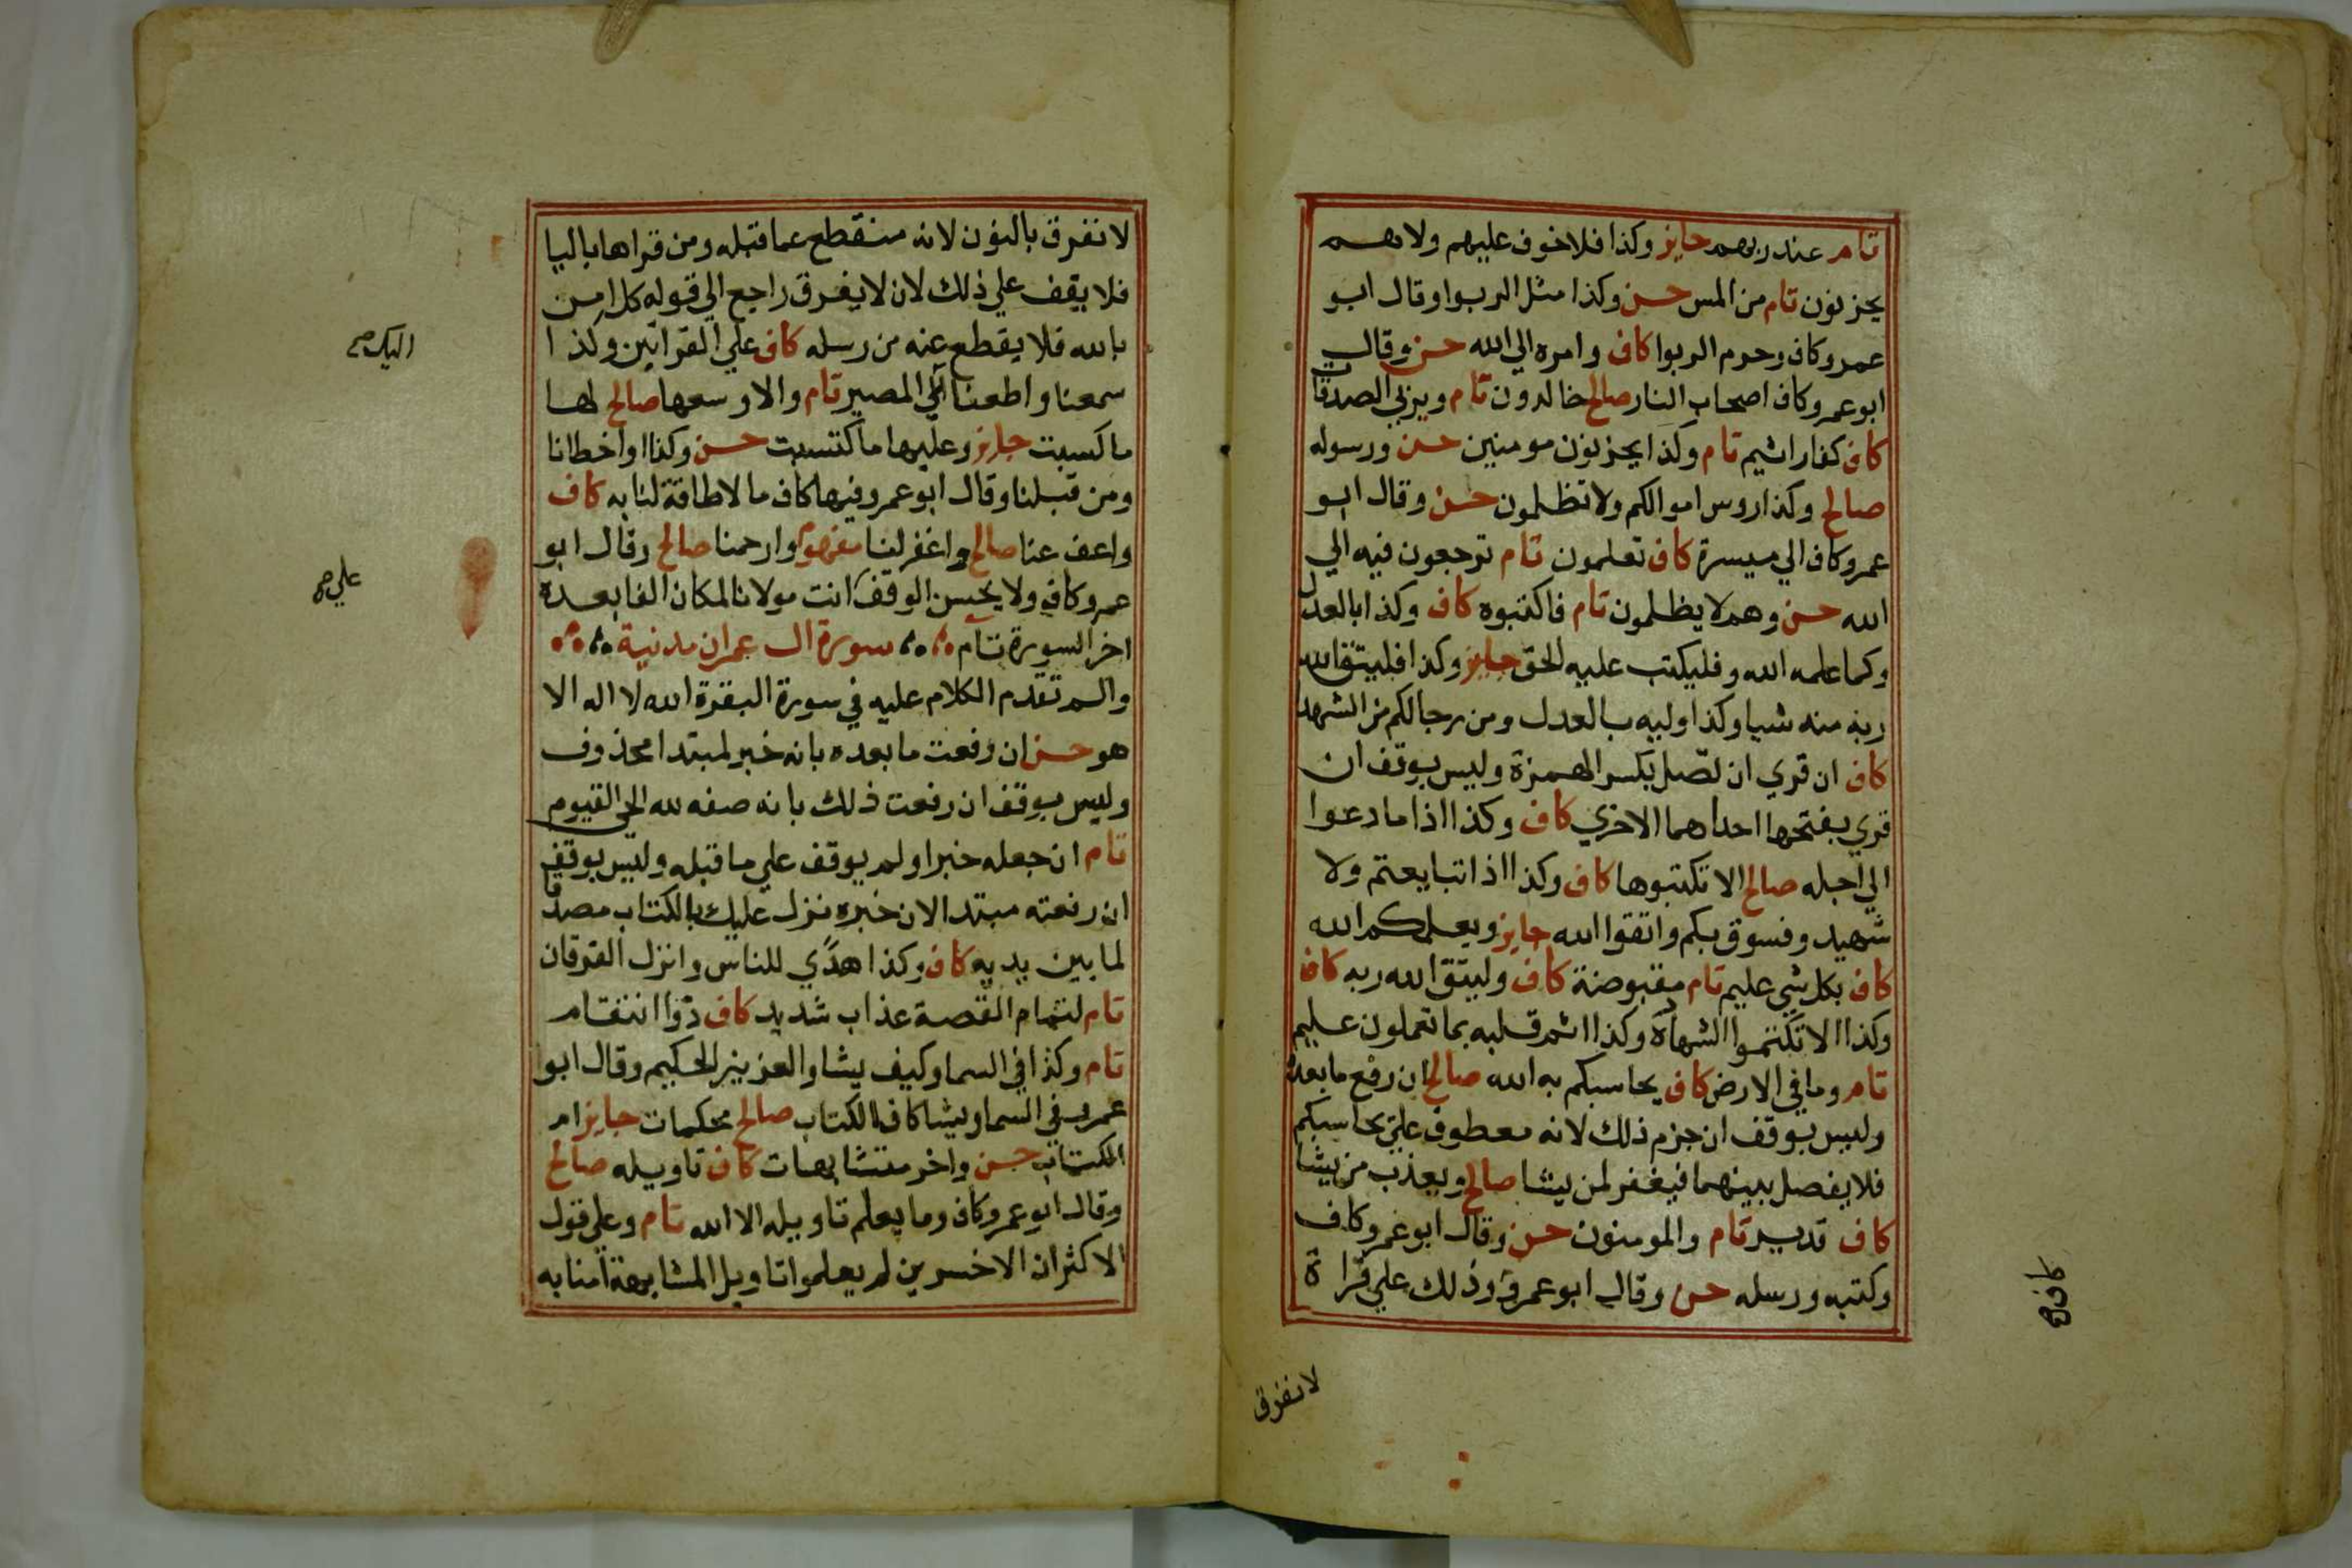 تام عند ربهم جايز وكذا فلا خوف عليهم ولا هم
يحزنون تام من المس حسن وكذا مثل الربوا وقال ابو
عمرو كاف وحرم الربوا كاف وامره الي الله حسن وقال
ابو عمرو كاف اصحاب النار صالح خالدون تام ويربي الصدقات
كاف كفار اثيم تام وكذا يحزنون مومنين حسن ورسوله
صالح وكذا روس اموالكم ولا تظلمون حسن وقال ابو
عمرو كاف الي ميسرة كاف تعلمون تام ترجعون فيه الي
الله حسن وهم لا يظلمون تام فاكتبوه كاف وكذا بالعدل
وكما علمه الله وفليكتب عليه الحق جايز وكذا فليتق الله
ربه منه شيا وكذا وليه بالعدل ومن رجالكم من الشهدا
كاف ان قري ان تضل بكسر الهمزة وليس بوقف ان
قري بفتحها احداهما الاخري كاف وكذا اذا ما دعوا
الي اجله صالح الا تكتبوها كاف وكذا اذا تبايعتم ولا
شهيد وفسوق بكم واتقوا الله جايز ويعلمكم الله
كاف بكل شي عليم تام مقبوضة كاف وليتق الله ربه كاف
وكذا الا تكتموا الشهادة وكذا اثم قلبه بما تعملون عليم
تام وما في الارض كاف يحاسبكم به الله صالح ان رفع ما بعده
وليس بوقف ان جزم ذلك لانه معطوف علي يحاسبكم
فلا يفصل بينهما فيغفر لمن يشا صالح ويعذب من يشا
كاف قدير تام والمومنون حسن وقال ابو عمرو كاف
وكتبه ورسله حسن وقال ابو عمرو وذلك علي قراة
كاف صح
لا نفرق
لا نفرق بالنون لانه منقطع عما قبله ومن قراها باليا
فلا يقف علي ذلك لان لا يفرق راجع الي قوله كل امن
بالله فلا يقطع عنه من رسله كاف علي القراتين وكذا
سمعنا واطعنا المصير تام والا وسعها صالح لها
ما كسبت جايز وعليها ما كتسبت حسن وكذا او اخطانا
ومن قبلنا وقال ابو عمرو فيها كاف ما لا طاقة لنا به كاف
واعف عنا صالح واغفر لنا مفهوم وارحمنا صالح وقال ابو
عمرو كاف ولا يحسن الوقف انت مولانا لمكان الفا بعده
اخر السورة تام سورة ال عمران مدنية
والم تقدم الكلام عليه في سورة البقرة الله لا اله الا
هو حسن ان رفعت ما بعده بانه خبر لمبتدا محذوف
وليس بوقف ان رفعت ذلك بانه صفه لله الحي القيوم
تام ان جعله خبرا ولم يوقف علي ما قبله وليس بوقف
ان رفعته مبتدا لان خبره نزل عليك بالكتاب مصدقا
لما بين يديه كاف وكذا هدي للناس وانزل الفرقان
تام لتمام القصة عذاب شديد كاف ذوا انتقام
تام وكذا في السما وكيف يشا والعزيز الحكيم وقال ابوا
عمر في السما ويشا كاف الكتاب صالح محكمات جايز ام
الكتاب حسن واخر متشابهات كاف تاويله صالح
وقال ابو عمرو كاف وما يعلم تاويله الا الله تام وعلي قول
الاكثران الاخسرين لم يعلموا تاويل المشابهة امنا به
اليك صح
علي صح